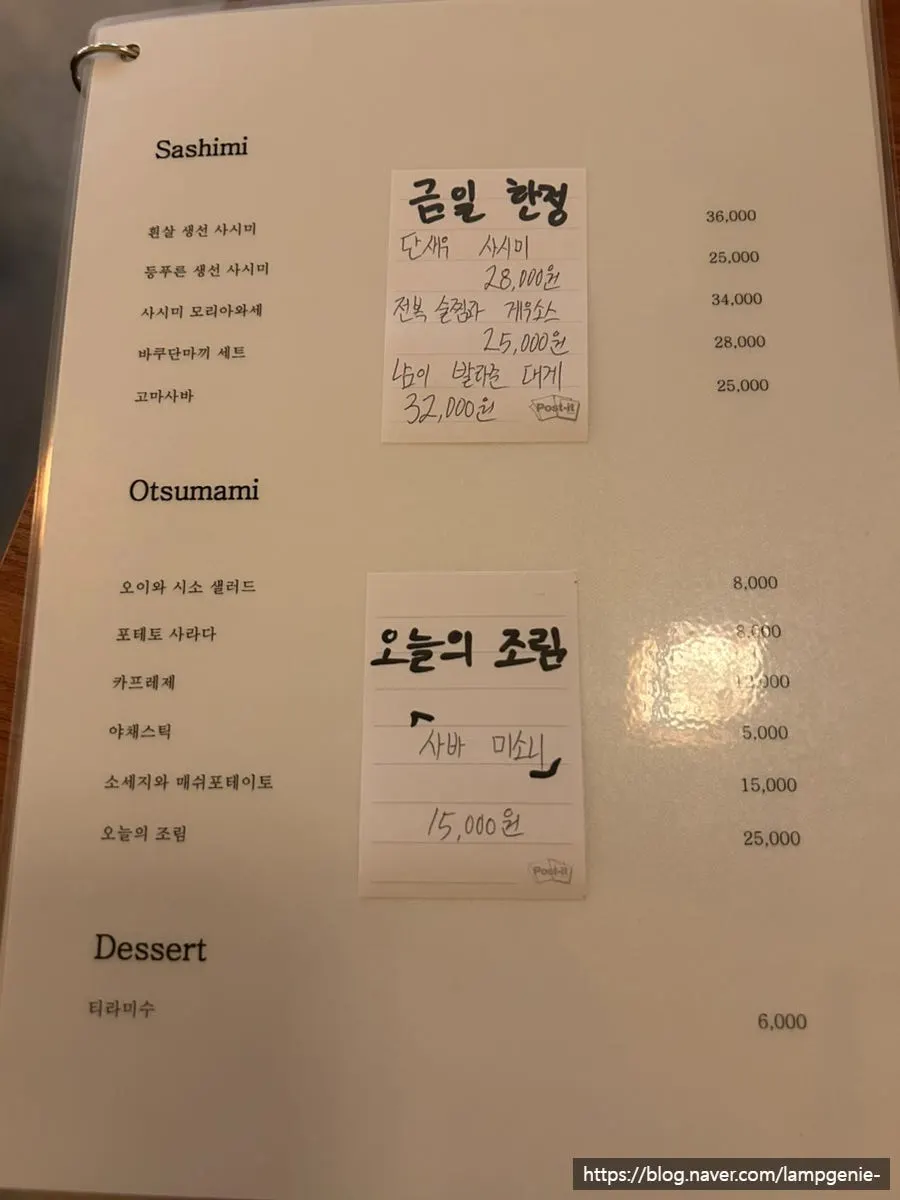 Sashimi
흰살 생선 사시미 36,000
등푸른 생선 사시미 25,000
사시미 모리아와세 34,000
바쿠단마끼 세트 28,000
고마사바 25,000
금일 한정
단새우 사시미
28,000원
전복 술찜과 게우소스
25,000원
남이 발라준 대게
32,000원
Post-it
Otsumami
오이와 시소 샐러드 8,000
포테토 사라다 8,000
카프레제
야채스틱 5,000
소세지와 매쉬포테이토 15,000
오늘의 조림 25,000
오늘의 조림
「사바 미소니」
15,000원
Post-it
Dessert
티라미수 6,000
https://blog.naver.com/lampgenie-